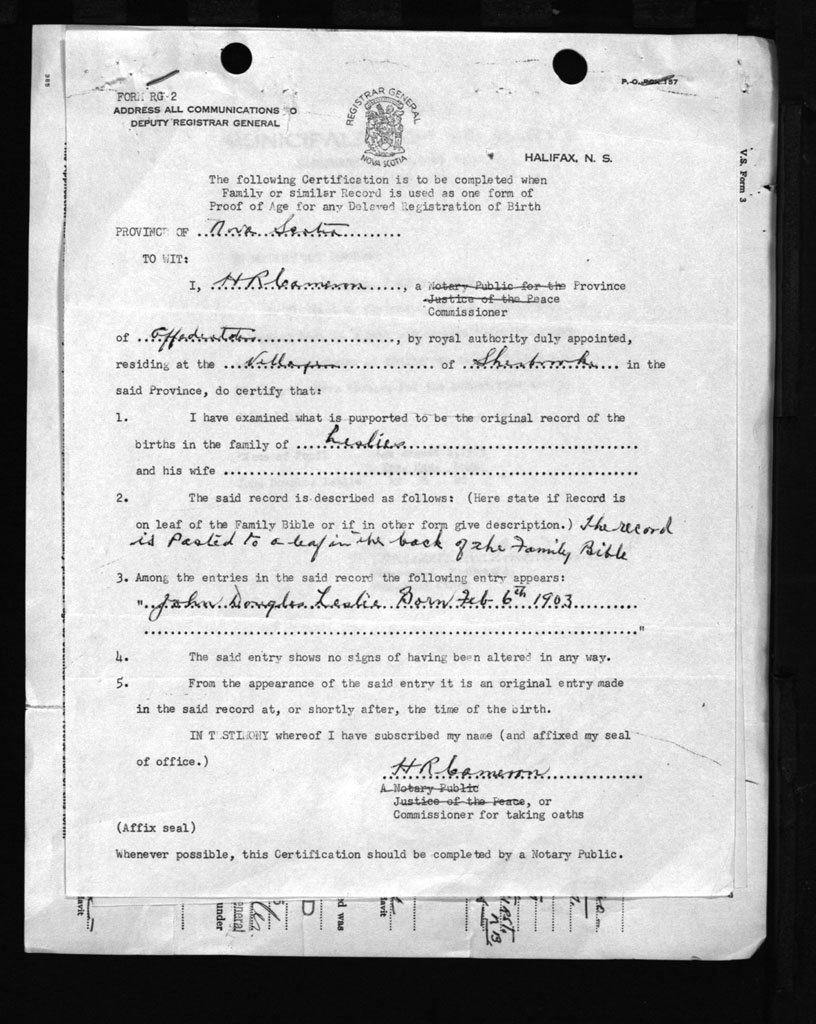 P. O. BOX 157
FORM RG-2
ADDRESS ALL COMMUNICATIONS TO
DEPUTY REGISTRAR GENERAL
REGISTRAR GENERAL
NOVA SCOTIA
HALIFAX, N. S.
V.S. Form 3
The following Certification is to be completed when
Family or similar Record is used as one form of
Proof of Age for any Delayed Registration of Birth
PROVINCE OF ..Nova Scotia..
TO WIT:
I, ..H R Cameron.., a Notary Public for the Province
Justice of the Peace
Commissioner
of ..Affadavits.., by royal authority duly appointed,
residing at the .. .. of ..Sherbrooke.. in the
said Province, do certify that:
1. I have examined what is purported to be the original record of the
births in the family of ..Leslies..
and his wife ..
2. The said record is described as follows: (Here state if Record is
on leaf of the Family Bible or if in other form give description.) The record
is Pasted to a leaf in the back of the Family Bible
3. Among the entries in the said record the following entry appears:
"..John Douglas Leslie Born Feb 6th 1903..
.."
4. The said entry shows no signs of having been altered in any way.
5. From the appearance of the said entry it is an original entry made
in the said record at, or shortly after, the time of the birth.
IN TESTIMONY whereof I have subscribed my name (and affixed my seal
of office.)
..H R Cameron..
A Notary Public
Justice of the Peace, or
Commissioner for taking oaths
(Affix seal)
Whenever possible, this Certification should be completed by a Notary Public.
davit
eneral
under
D
d was
davit